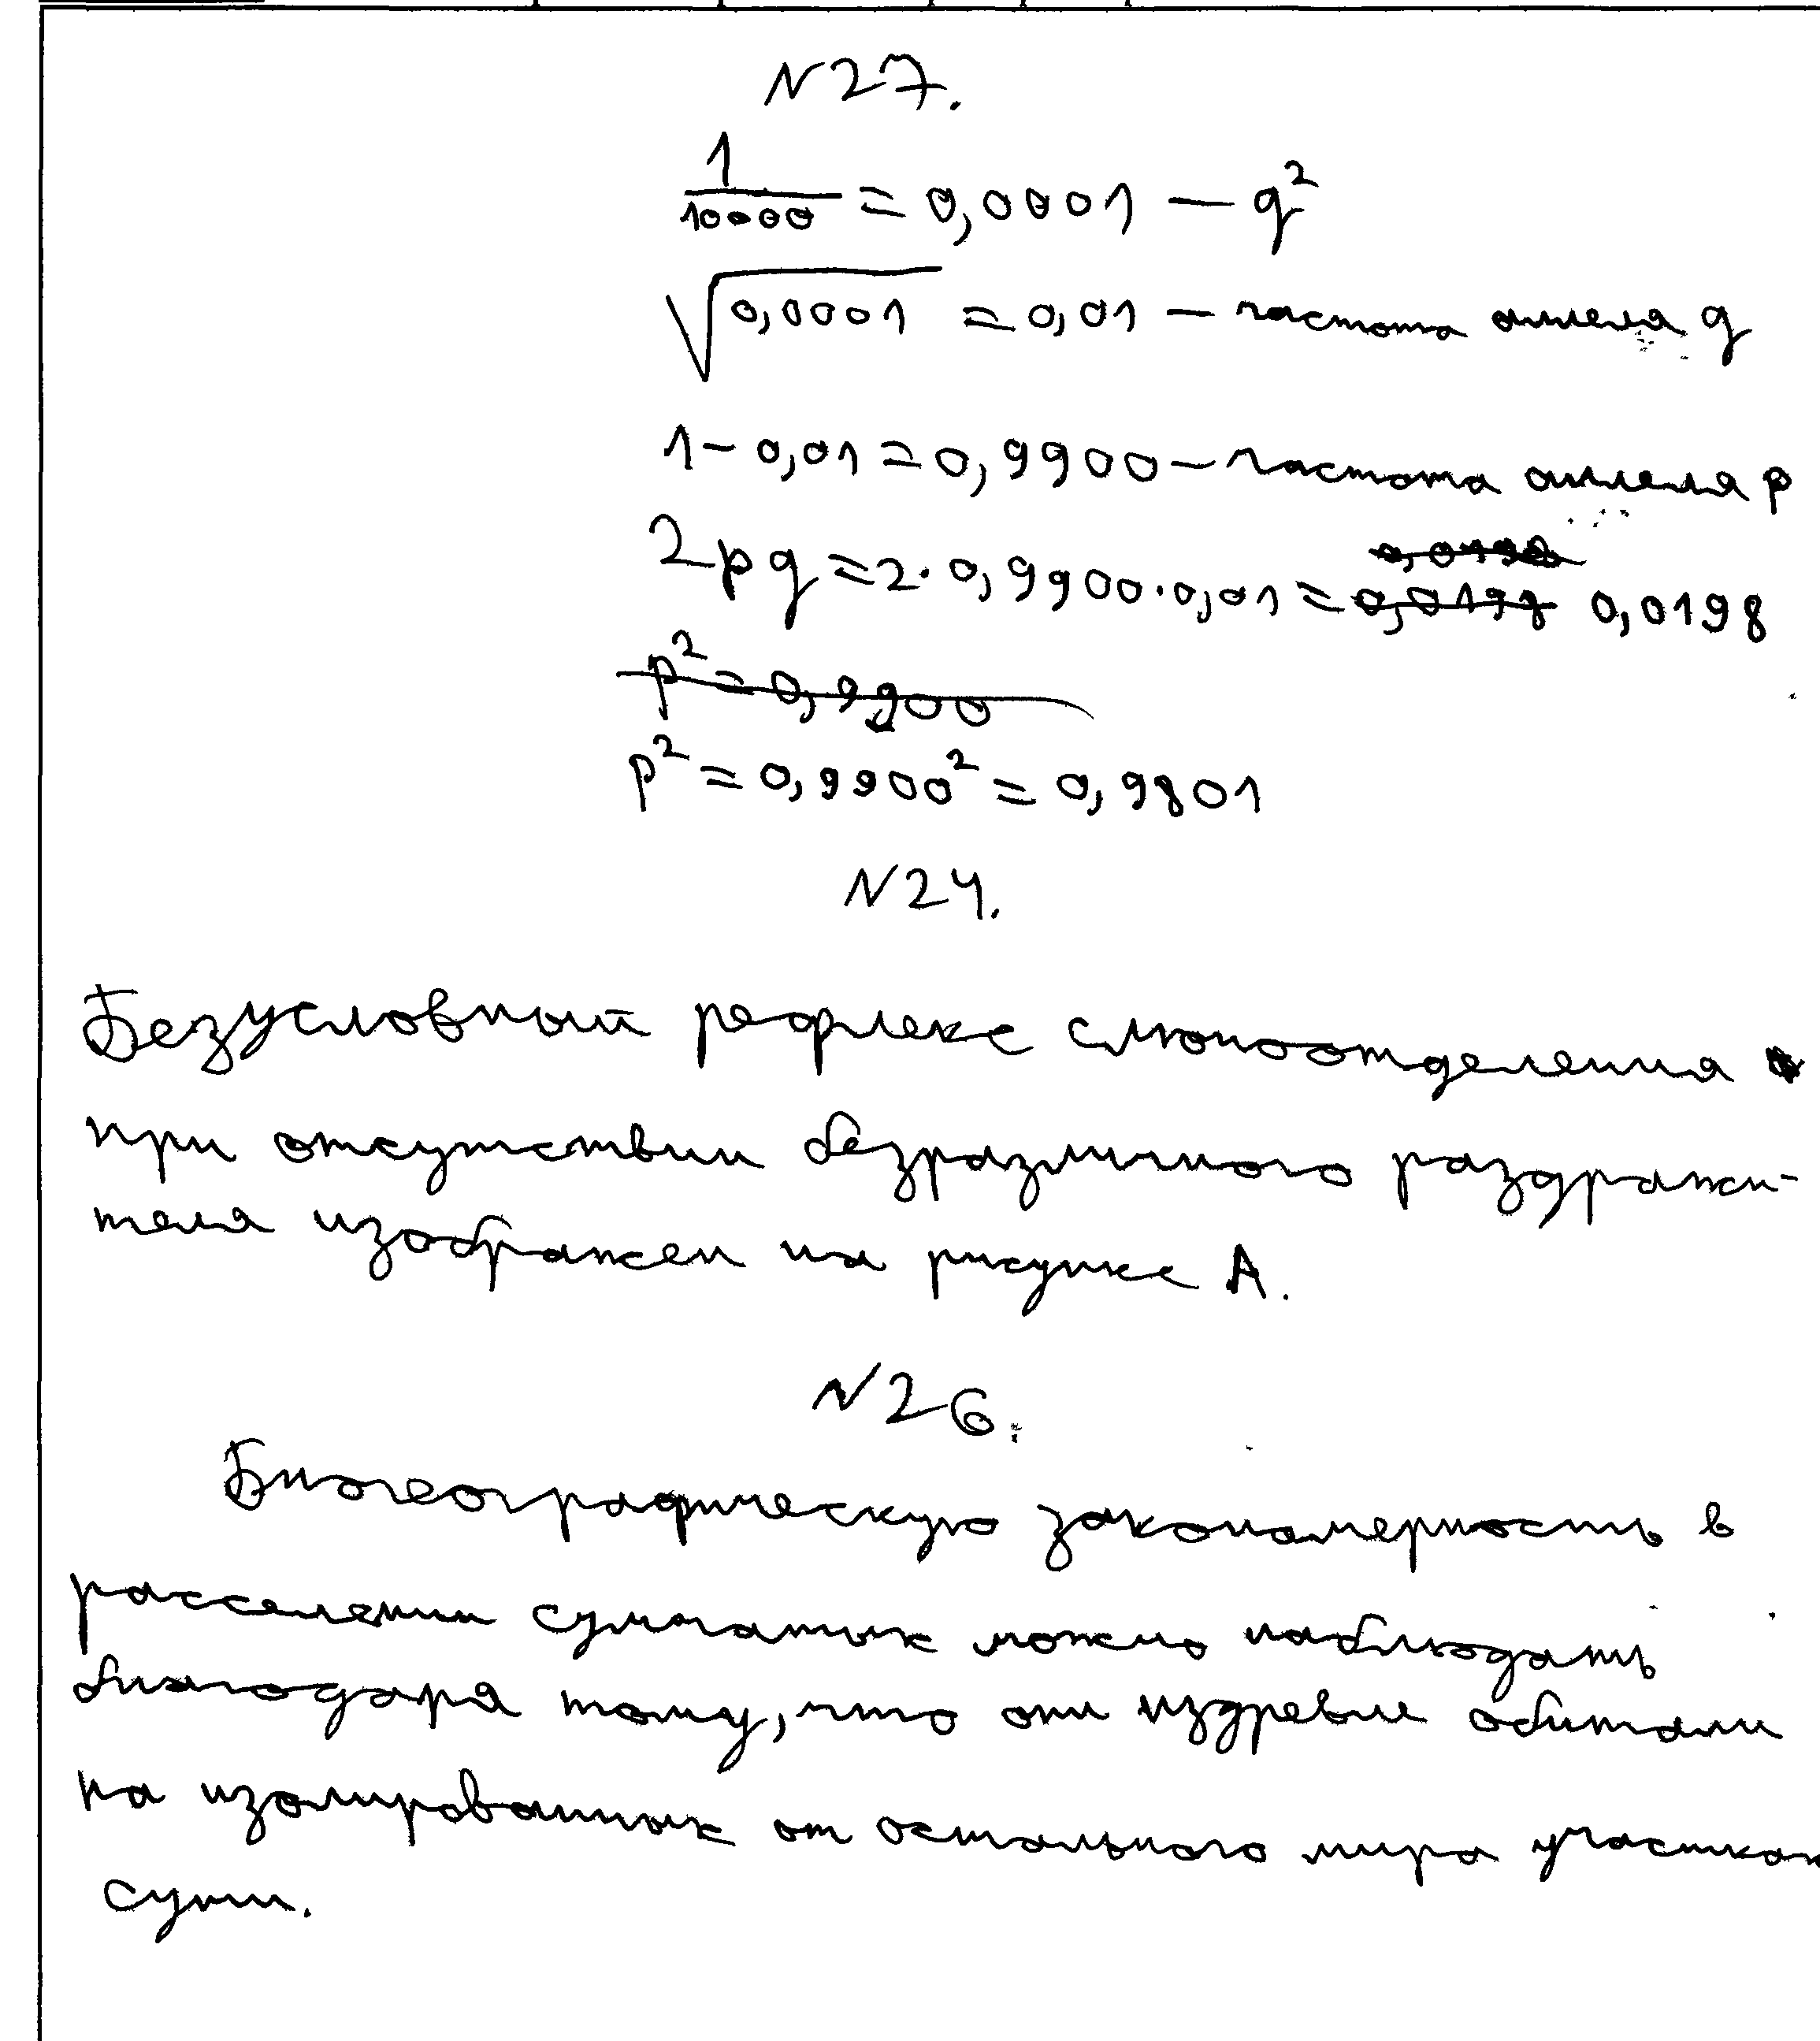 N27.
1/10000 = 0,0001 – q²
√0,0001 = 0,01 – частота аллеля q
1 – 0,01 = 0,9900 – частота аллеля p
2pq = 2·0,9900·0,01 = 0,0198
p² = 0,9900
p² = 0,9900² = 0,9801
N24.
Безусловный рефлекс слюноотделения
при отсутствии безразличного раздражи-
теля изображен на рисунке А.
N26.
Биогеографическую закономерность в
расселении сумчатых можно наблюдать
благодаря тому, что они издревле обитали
на изолированных от остального мира участках
суши.